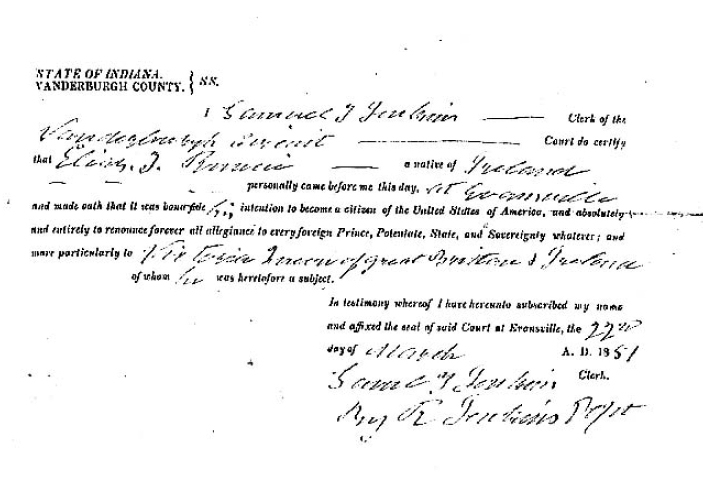 STATE OF INDIANA.
VANDERBURGH COUNTY. } SS.
I Samuel T Jenkins Clerk of the
Vanderburgh Circuit Court do certify
that a native of Ireland
personally came before me this day, at Evansville
and made oath that it was bona fide his intention to become a citizen of the United States of America, and absolutely
and entirely to renounce forever all allegiance to every foreign Prince, Potentate, State, and Sovereignty whatever; and
more particularly to Victoria Queen of Great Britain & Ireland
of whom he was heretofore a subject.
In testimony whereof I have hereunto subscribed my name
and affixed the seal of said Court at Evansville, the 22nd
day of March A. D. 1851
Saml T Jenkins Clerk.
By R Jenkins Dpt